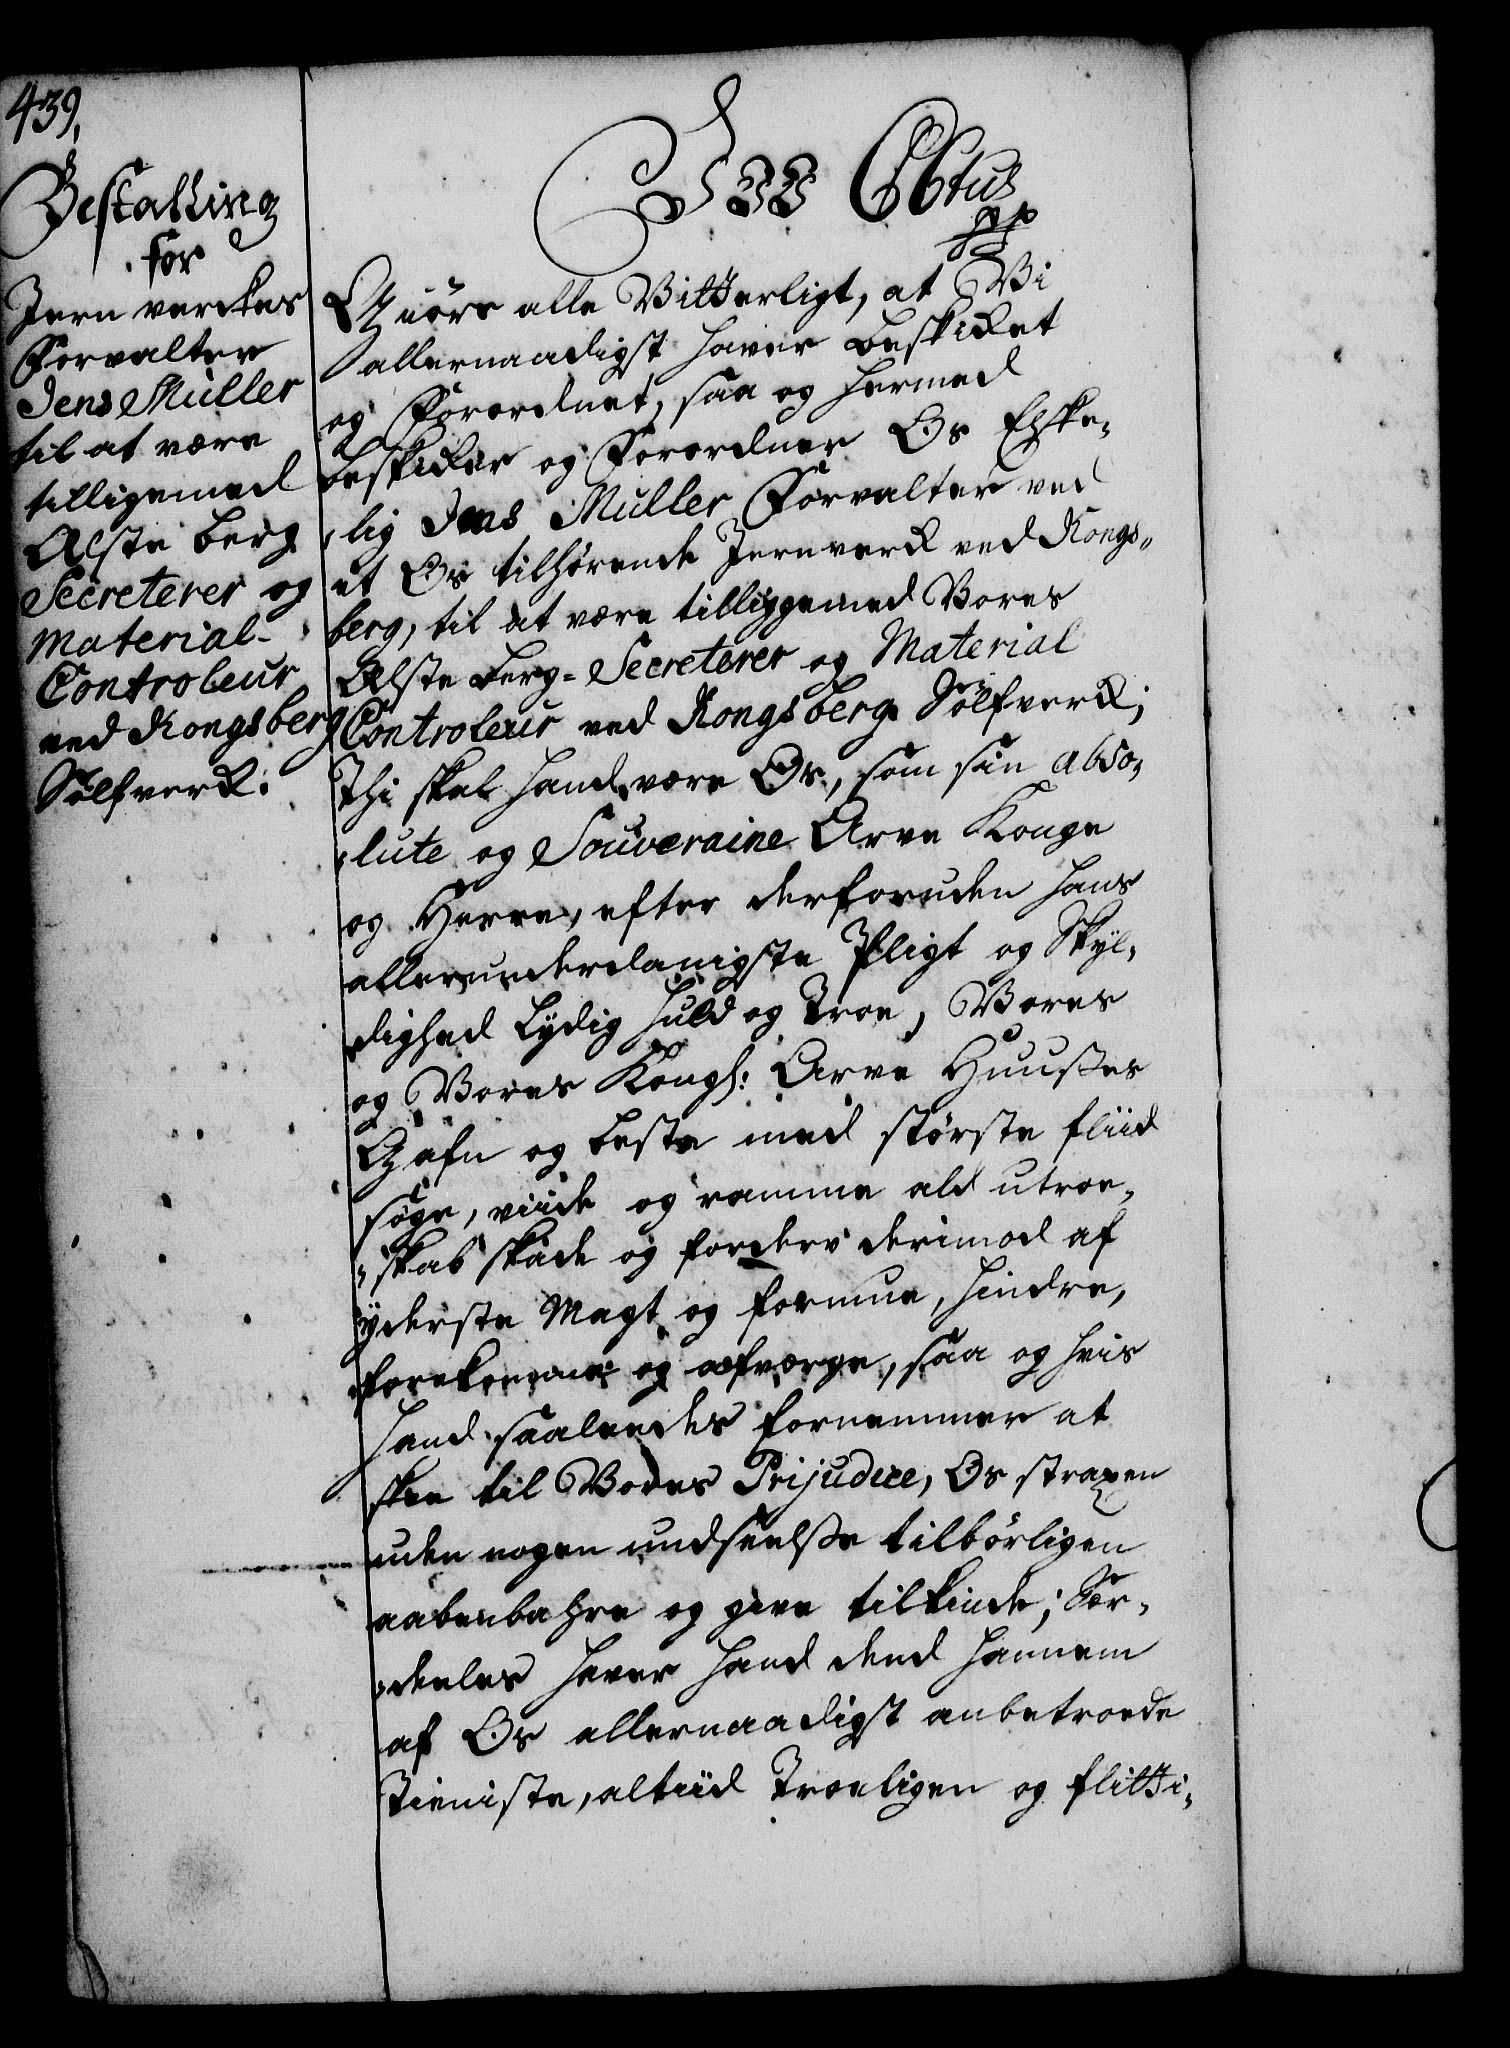 439,
Bestalling
for
Jern verckes
Forvalter
Jens Müller
til at være
tilligemed
Elste berg
Secreterer og
Material-
Controleur
ved Kongsberg
Sølfverck.
CVI Christus
pp
Giøre alle Vitterligt, at Vi
allernaadigst haver beskicket
og Forordnet, saa og hermed
beskicker og Forordner Os Elske,
,lig Jens Müller Forvalter ved
et Os tilhørende Jernverck ved Kongs,,
berg, til at være tilliggemed Vores
Elste berg-Secreterer og Material
Controleur ved Kongsbergs Sølfverck;
Thi skal hand være Os, som sin abso,
,lute og Souveraine Arve Konge
og Herre, efter derforuden hans
allerunderdanigste Pligt og Skyl,
dighed Lydig huld og Troe, Vores
og Vores Kongl: Arve Huusses
Gafn og beste med største fliid
søge, viide og ramme ald utroe,
,skab skade og forderv derimod af
yderste Magt og formue, hindre,
forekomme og afværge, saa og hvis
hand saaleedes fornemmer at
skee til Vores Prijudice, Os straxen
uden nogen undseelsse tilbørligen
aabenbahre og give tilkiende; Sær,
,deeles haver hand dend hannem
af Os allernaadigst anbetroede
Tieniste, altiid Troeligen og flitti,